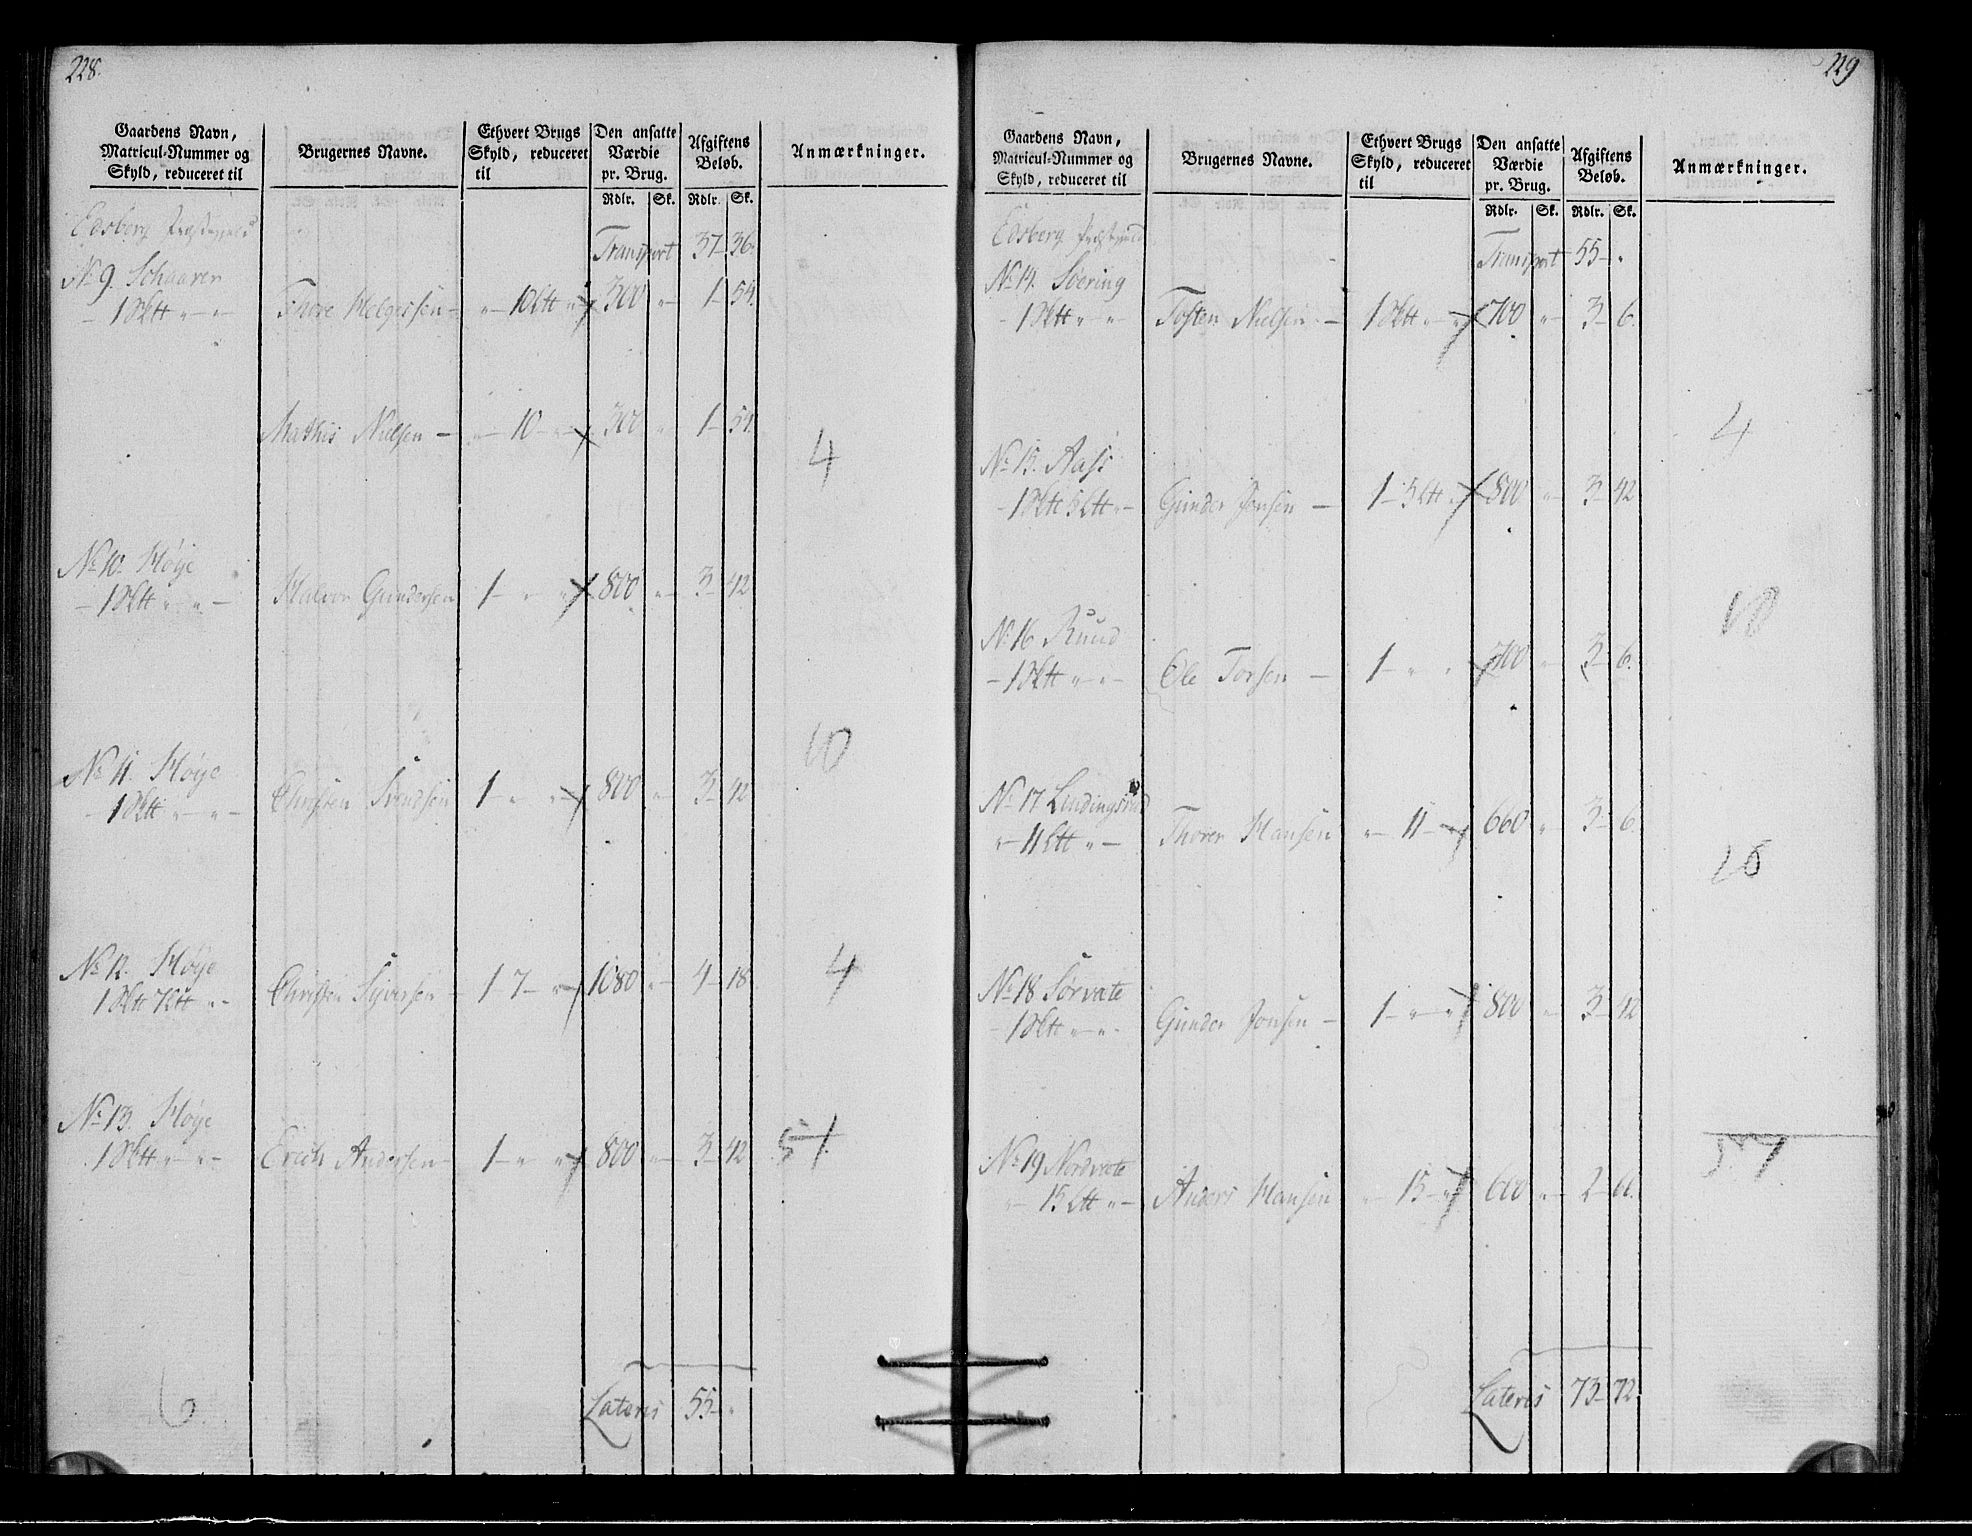 228.
Gaardens Navn, Matricul-Nummer og Skyld, reduceret til | Brugernes Navne. | Ethvert Brugs Skyld, reduceret til | Den ansatte Værdie pr. Brug. Rdlr. Sk. | Afgiftens Beløb. Rdlr. Sk. | Anmærkninger.
Edsberg Præstegield | Transport | 37 - 36.
No 9. Schaaren
- 1 Sktt " - " - | Thore Helgessen - | " - 10 Ltt " | 300 " - | 1 - 54.
Mathis Nielsen - | " - 10 - " - | 300 " | 1 - 54.
4
No 10. Høye
- 1 Sktt " - " - | Halvor Gundersen | 1 - " " | 800 " - | 3 - 42
10
No 11. Høye
- 1 Sktt " - " - | Christen Svendsen | 1 - " - " - | 800 " - | 3 - 42
No 12. Høye
1 Sktt 7 Ltt " - | Christen Syversen - | 1 - 7 - " - | 1080 " - | 4 - 18.
4
No 13. Høye
1 Sktt " - " - | Erich Andersen - | 1 - " - " | 800 " - | 3 - 42
51
6
Lateris | 55 - "
229
Gaardens Navn, Matricul-Nummer og Skyld, reduceret til | Brugernes Navne. | Ethvert Brugs Skyld, reduceret til | Den ansatte Værdie pr. Brug. Rdlr. Sk. | Afgiftens Beløb. Rdlr. Sk. | Anmærkninger.
Edsberg Præstegield | Transport | 55 - "
No 14. Soering
- 1 Sktt " - " | Tosten Nielsen - | 1 Sktt " - " | 700 " - | 3 - 6.
4
No 15. Aass
- 1 Sktt 5 Ltt " - | Gunder Jensen - | 1 - 5 Ltt " | 800 " - | 3 - 42
No 16 Ruud
- 1 Sktt " - " - | Ole Torsen - | 1 " - " | 700 " - | 3 - 6.
No 17 Lundingsrud
" - 11 Ltt " - | Thorer Hansen | " - 11 - " | 660 " - | 3 - 6.
No 18 Sørvate
- 1 Sktt " - " - | Gunder Jonsen - | 1 - " - " | 800 " - | 3 - 42
No 19 Nordvate
" - 15 Ltt " - | Anders Hansen | " - 15 - " | 600 " - | 2 - 66.
57
Lateris | 73 - 72